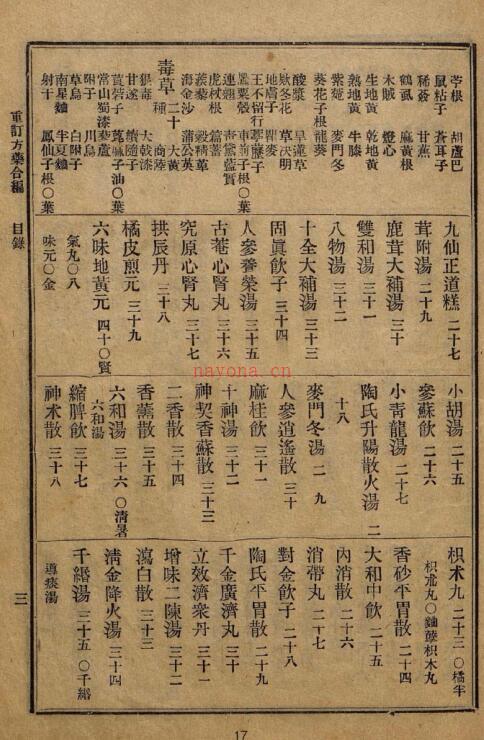 重訂方藥合編
目錄
三
苧根
胡蘆巴
鼠粘子
蒼耳子
稀薟
甘蕉
鶴虱
麻黃根
木賊
燈心
生地黃
乾地黃
熟地黃
牛膝
紫菀
麥門冬
葵花子根
龍葵
酸漿
旱蓮草
欵冬花
草決明
地膚子
瞿麥
王不留行
葶藶子
車前子根○葉
連翹
青黛藍實
蒺藜
穀精草
虎杖根
萹蓄
海金沙
蒲公英
毒草二十種
大黃
商陸
狼毒
大戟漆
甘遂
續隨子
莨菪子
萆麻子油○葉
常山蜀漆
藜蘆
附子
川烏
草烏
白附子
南星麯
半夏麯
射干
鳳仙子根○葉
九仙正道糕 二十七
茸附湯 二十九
鹿茸大補湯 三十
雙和湯 三十一
八物湯 三十二
十全大補湯 三十三
固眞飮子 三十四
人參養榮湯 三十五
古菴心腎丸 三十六
究原心腎丸 三十七
拱辰丹 三十八
橘皮煎元 三十九
六味地黃元 四十○腎
氣丸○八
味元○金
小胡湯 二十五
參蘇飮 二十六
小靑龍湯 二十七
陶氏升陽散火湯 二
十八
麥門冬湯 二九
人參逍遙散 三十
麻桂飮 三十一
十神湯 三十二
神契香蘇散 三十三
二香散 三十四
香薷散 三十五
六和湯 三十六○淸暑
六和湯
縮脾飮 三十七
神朮散 三十八
枳朮丸 二十三○橘半
枳朮丸○麯蘖枳朮丸
香砂平胃散 二十四
大和中飮 二十五
內消散 二十六
消滯丸 二十七
對金飮子 二十八
陶氏平胃散 二十九
千金廣濟丸 三十
立效濟衆丹 三十一
增味二陳湯 三十二
瀉白散 三十三
淸金降火湯 三十四
千緡湯 三十五○千緡
導痰湯
nayona.cn
17